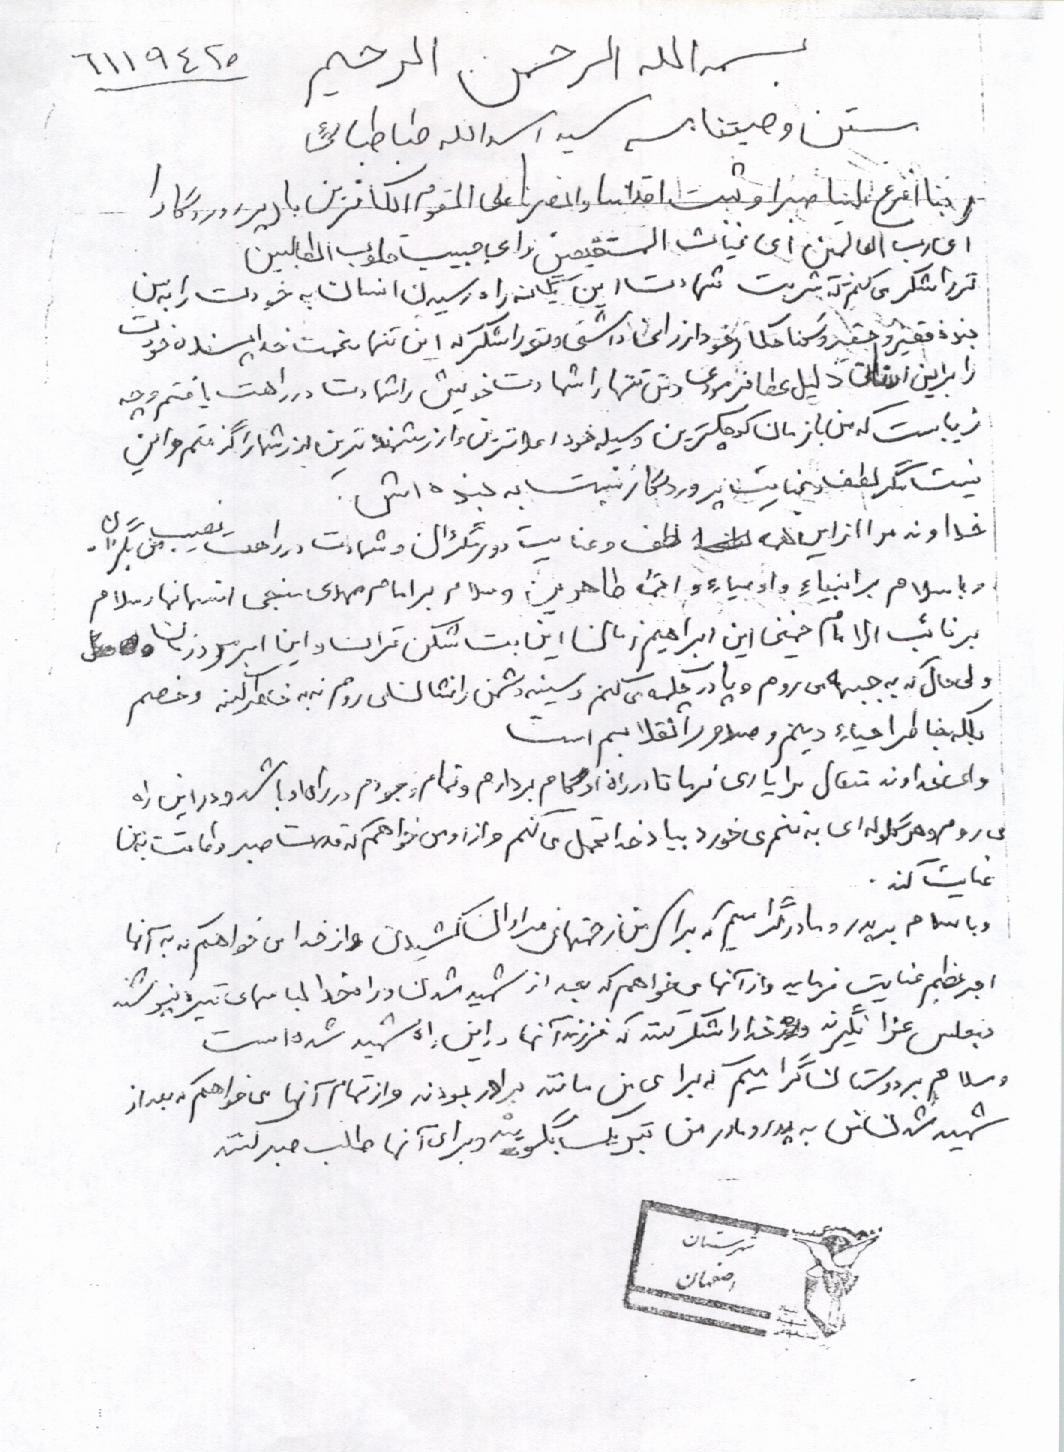 ٦١١٩٤٢٥
بسمه الله الرحمن الرحیم
متن وصیتنامه سید اسدالله طباطبائی
ربنا افرغ علینا صبرا و ثبت اقدامنا وانصرنا علی القوم الکافرین بار پروردگارا
ای رب العالمین ای غیاث المستغیثین و ای حبیب قلوب الطالبین
ترا شکر می کنم که شربت شهادت این یگانه راه رسیدن انسان به خودت را به من
بنده فقیر و حقیر و گناهکار خود ارزانی داشتی و تو را شکر که این تنها نعمت خدا پسندانه خودت
را بر این انسان ذلیل عطا فرمودی و من تنها راه سعادت خویش را شهادت در راهت یافتم و چه
زیباست که من با زمان کوچکترین وسیله خود اعلاترین و ارزشمندترین ارزشها را گرفتم و این
نیست مگر لطف و عنایت پروردگار نسبت به بنده اش .
خداوند مرا از این لطف و عنایت دور نگردان و شهادت در راهت نصیب من بگردان .
و با سلام بر انبیاء و اوصیاء و ائمه طاهرین و سلام بر امام مهدی منجی انسانها و سلام
بر نائب او امام خمینی این ابراهیم زمان این بت شکن قرن و این ابر مرد زمان
ولی حال که به جبهه می روم و پا در چکمه می کنم و سینه دشمن را نشان می روم نه به خاطر کینه و خصم
بلکه بخاطر احیاء دینم و صدور انقلابم است
و ای خداوند متعال مرا یاری فرما تا در راه تو گام بردارم و تمام وجودم در راه او باشد و در این راه
می روم و هر گلوله ای به تنم می خورد بیاد خدا تحمل می کنم و از او می خواهم که قدرت صبر و اقامت به من
عنایت کند .
و با سلام بر پدر و مادر گرامیم که برای من زحمتهای فراوان کشیدن و از خدا می خواهم که به آنها
اجر عظیم عنایت فرماید و از آنها می خواهم که بعد از شهید شدنم لباسهای تیره نپوشند
مجلس عزا نگیرند و خدا را شکر کنند که فرزند آنها در این راه شهید شده است
و سلام بر دوستان گرامیم که برای من مانند برادر بودند و از تمام آنها می خواهم که بعد از
شهید شدنم به پدر و مادر من تبریک بگویند و برای آنها طلب صبر کنند
شهرستان
اصفهان